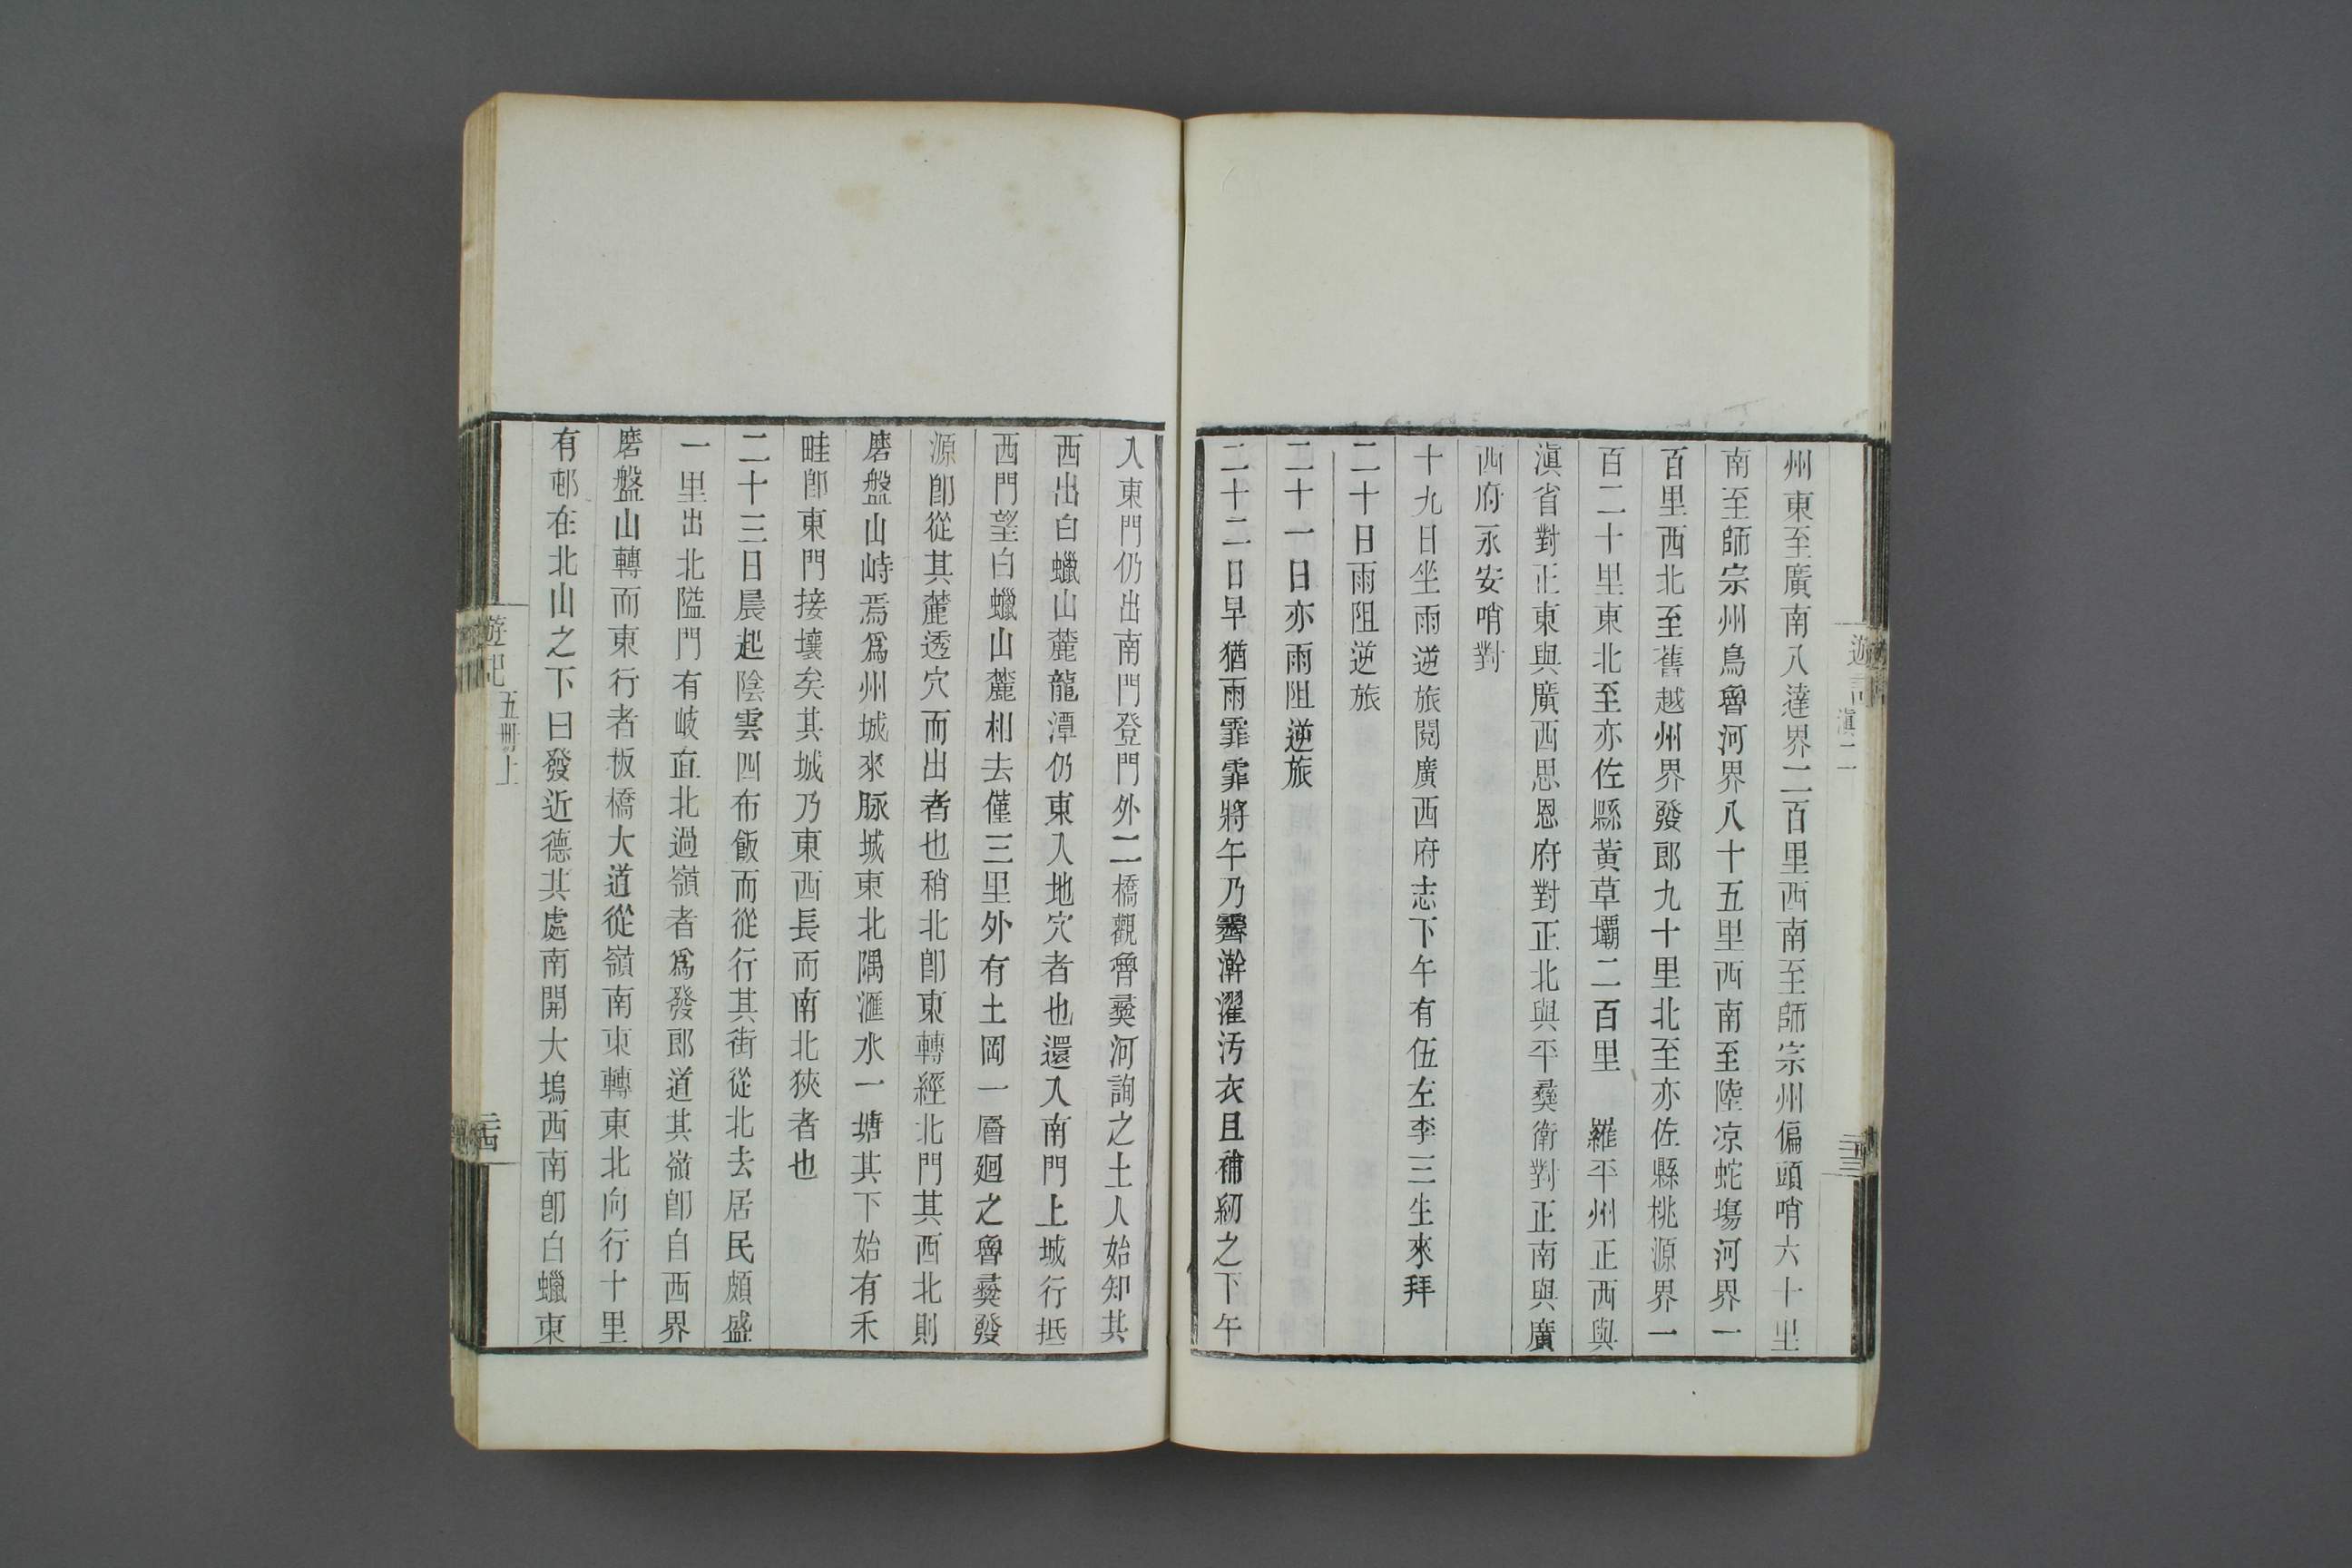 遊記
滇二
州東至廣南八達界二百里西南至師宗州偏頭哨六十里
南至師宗州鳥魯河界八十五里西南至陸凉蛇場河界一
百里西北至舊越州界發郎九十里北至亦佐縣桃源界一
百二十里東北至亦佐縣黃草壩二百里　羅平州正西與
滇省對正東與廣西思恩府對正北與平彝衛對正南與廣
西府永安哨對
十九日坐雨逆旅閱廣西府志下午有伍左李三生來拜
二十日雨阻逆旅
二十一日亦雨阻逆旅
二十二日早猶雨霏霏將午乃霽澣濯汚衣且補紉之下午
入東門仍出南門登門外二橋觀魯彝河詢之土人始知其
西出白蠟山麓龍潭仍東入地穴者也還入南門上城行抵
西門望白蠟山麓相去僅三里外有土岡一層廻之魯彝發
源卽從其麓透穴而出者也稍北卽東轉經北門其西北則
磨盤山峙焉爲州城來脉城東北隅滙水一塘其下始有禾
畦卽東門接壤矣其城乃東西長而南北狹者也
二十三日晨起陰雲四布飯而從行其街從北去居民頗盛
一里出北隘門有岐直北過嶺者爲發郎道其嶺卽自西界
磨盤山轉而東行者板橋大道從嶺南東轉東北向行十里
有邨在北山之下曰發近德其處南開大塢西南卽白蠟東
遊記
五冊上